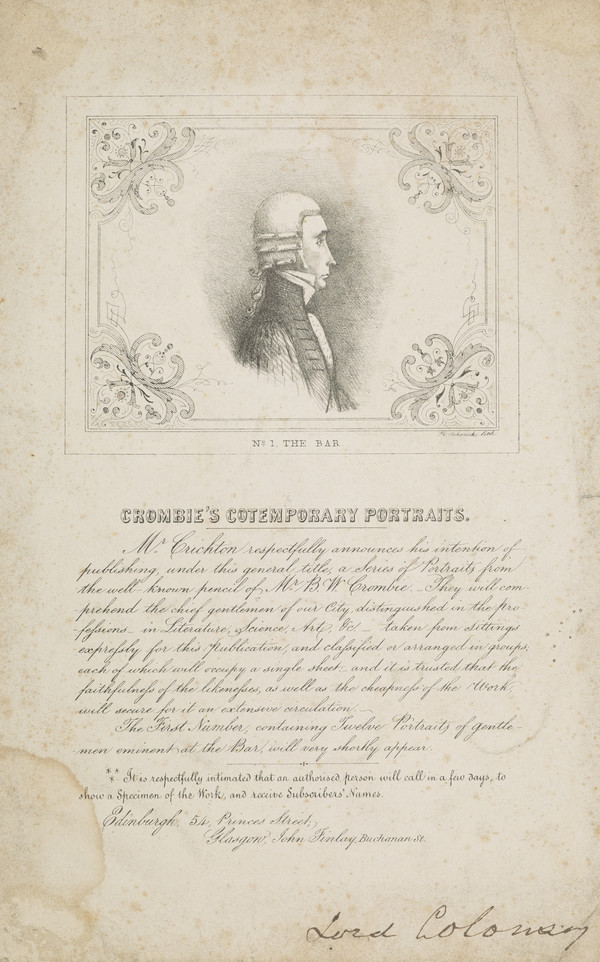 No. 1, THE BAR
lith.
CROMBIE'S COTEMPORARY PORTRAITS.
Mr. Crichton respectfully announces his intention of
publishing, under this general title, a Series of Portraits from
the well known pencil of Mr. B. W. Crombie. – They will com-
prehend the chief gentlemen of our City, distinguished in the pro-
fessions – in Literature, Science, Art, &c! – taken from sittings
expressly for this Publication, and classified or arranged in groups,
each of which will occupy a single sheet – and it is trusted that the
faithfulness of the likenesses, as well as the cheapness of the Work,
will secure for it an extensive circulation. –
The First Number, containing Twelve Portraits of gentle-
men eminent at the Bar, will very shortly appear.
*** It is respectfully intimated that an authorised person will call in a few days, to
show a Specimen of the Work, and receive Subscribers' Names.
Edinburgh, 54, Princes Street,
Glasgow, John Finlay, Buchanan St.
Lord Colonsay